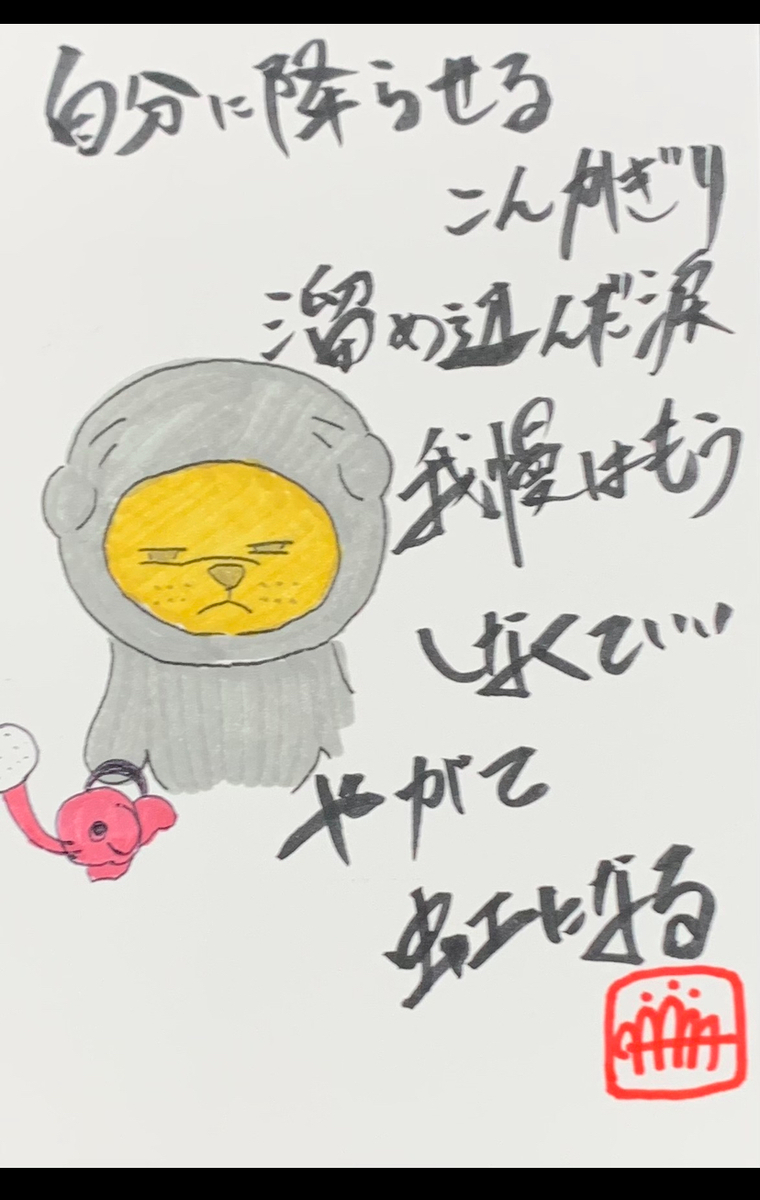 自分に降らせる
こんかぎり
溜め込んだ涙
我慢はもう
しなくてい…
やがて
虹になる